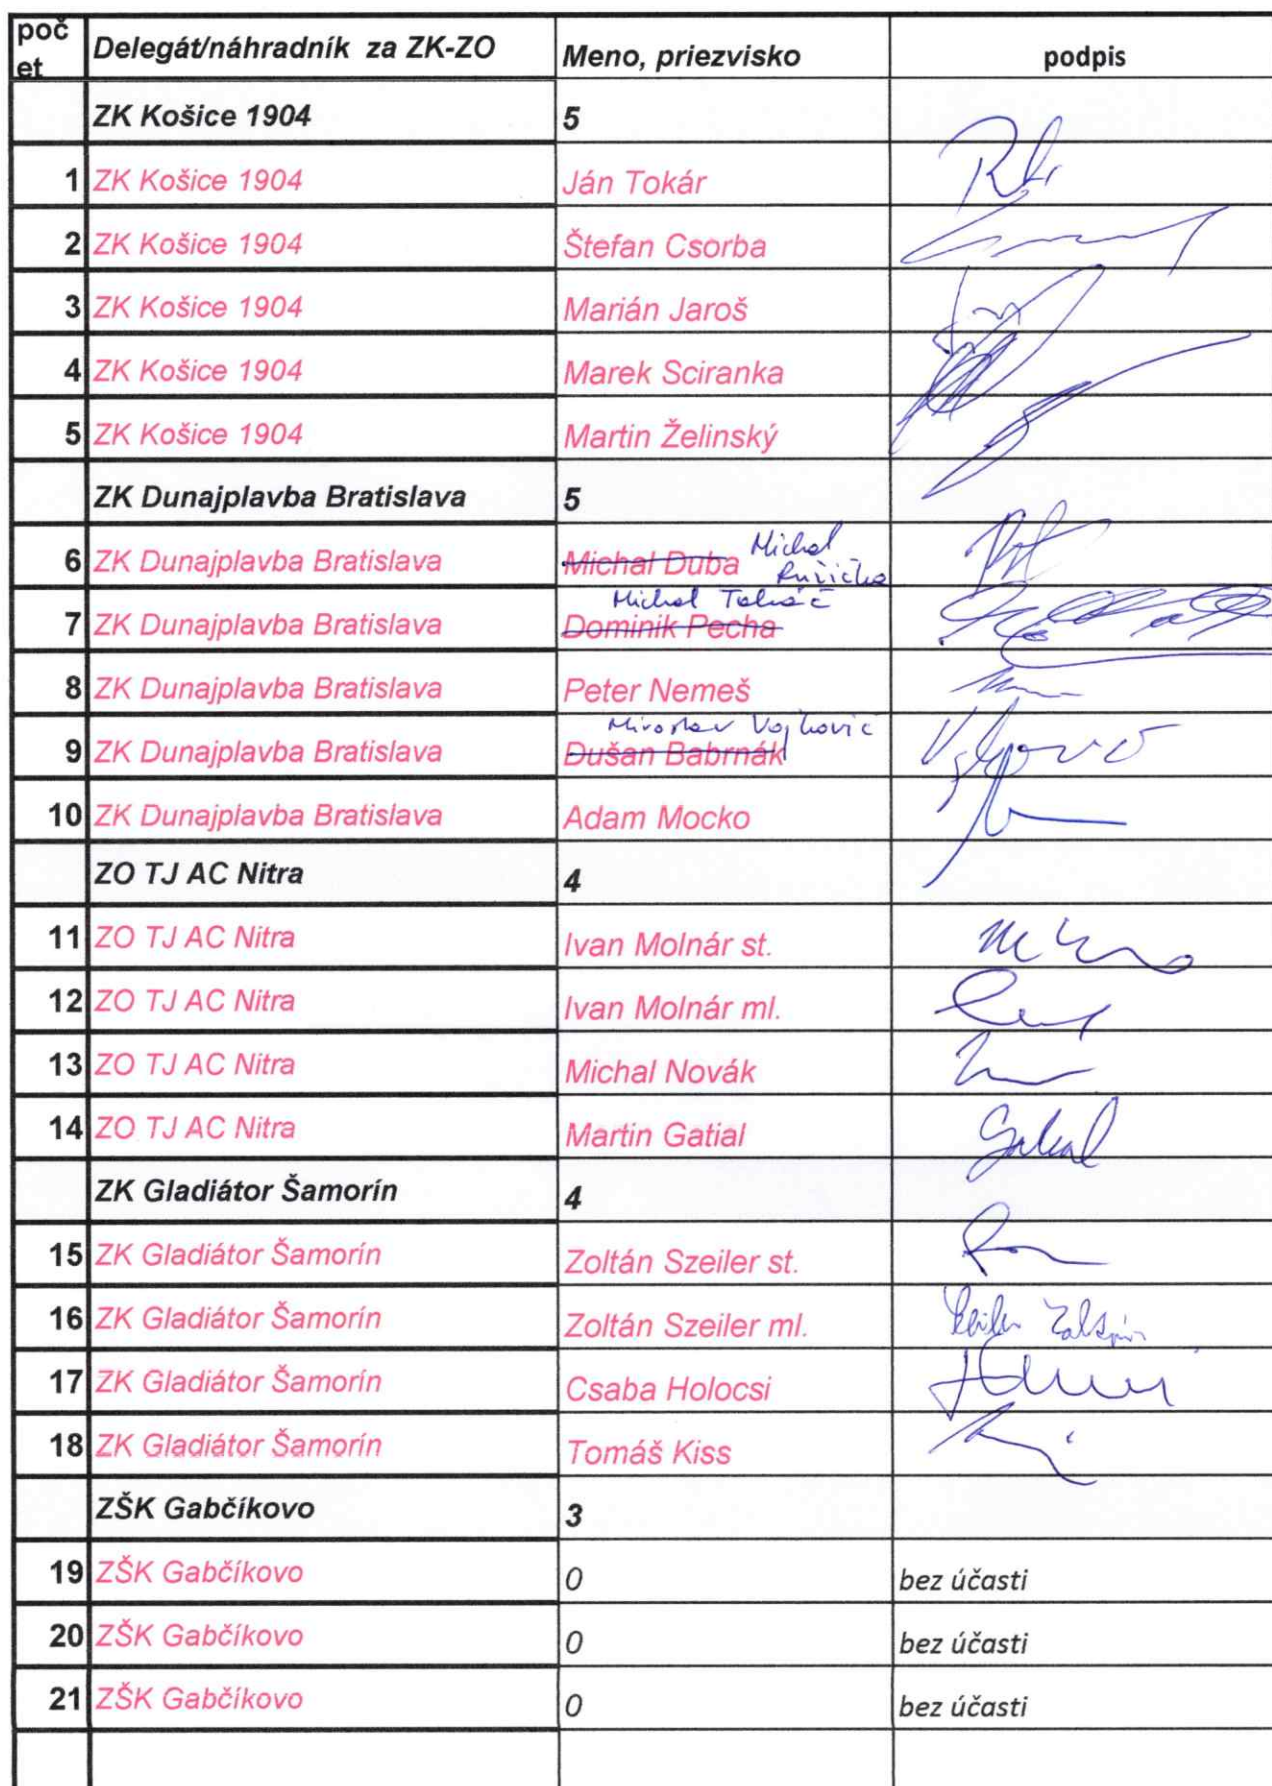 počet Delegát/náhradník za ZK-ZO Meno, priezvisko podpis
ZK Košice 1904 5
1 ZK Košice 1904 Ján Tokár
2 ZK Košice 1904 Štefan Csorba
3 ZK Košice 1904 Marián Jaroš
4 ZK Košice 1904 Marek Sciranka
5 ZK Košice 1904 Martin Želinský
ZK Dunajplavba Bratislava 5
6 ZK Dunajplavba Bratislava Michal Duba Michal Ružička
Michal
7 ZK Dunajplavba Bratislava Dominik Pecha
8 ZK Dunajplavba Bratislava Peter Nemeš
Miroslav Vojkovič
9 ZK Dunajplavba Bratislava Dušan Babrnák
10 ZK Dunajplavba Bratislava Adam Mocko
ZO TJ AC Nitra 4
11 ZO TJ AC Nitra Ivan Molnár st.
12 ZO TJ AC Nitra Ivan Molnár ml.
13 ZO TJ AC Nitra Michal Novák
14 ZO TJ AC Nitra Martin Gatial
ZK Gladiátor Šamorín 4
15 ZK Gladiátor Šamorín Zoltán Szeiler st.
16 ZK Gladiátor Šamorín Zoltán Szeiler ml.
17 ZK Gladiátor Šamorín Csaba Holocsi
18 ZK Gladiátor Šamorín Tomáš Kiss
ZŠK Gabčíkovo 3
19 ZŠK Gabčíkovo 0 bez účasti
20 ZŠK Gabčíkovo 0 bez účasti
21 ZŠK Gabčíkovo 0 bez účasti